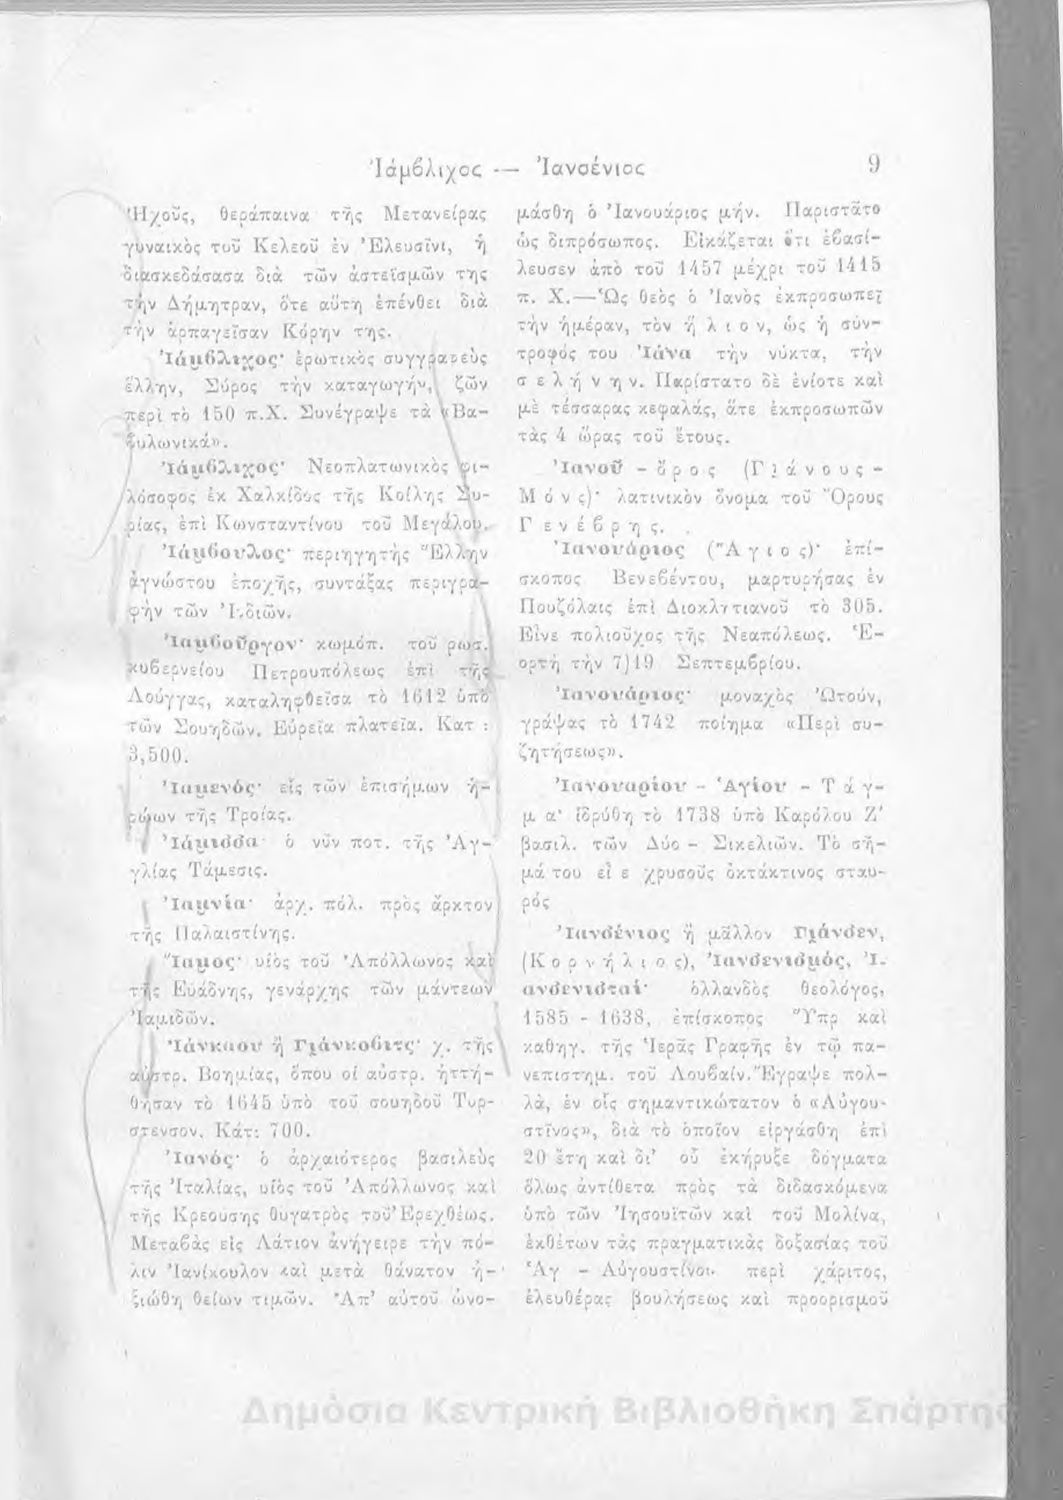 Ἰάμβλιχος — Ἰανσένιος 9
Ἠχοῦς, θεράπαινα τῆς Μετανείρας
γυναικὸς τοῦ Κελεοῦ ἐν Ἐλευσῖνι, ἡ
διασκεδάσασα διὰ τῶν ἀστεϊσμῶν της
τὴν Δήμητραν, ὅτε αὕτη ἐπένθει διὰ
τὴν ἁρπαγεῖσαν Κόρην της.
Ἰάμβλιχος· ἐρωτικὸς συγγραφεὺς
ἕλλην, Σύρος τὴν καταγωγήν, ζῶν
περὶ τὸ 150 π.Χ. Συνέγραψε τὰ «Βα-
βυλωνικά».
Ἰάμβλιχος· Νεοπλατωνικὸς φι-
λόσοφος ἐκ Χαλκίδος τῆς Κοίλης Συ-
ρίας, ἐπὶ Κωνσταντίνου τοῦ Μεγάλου.
Ἰάμβουλος· περιηγητὴς Ἕλλην
ἀγνώστου ἐποχῆς, συντάξας περιγρα-
φὴν τῶν Ἰνδιῶν.
Ἰαμβοῦργον· κωμόπ. τοῦ ρωσ.
κυβερνείου Πετρουπόλεως ἐπὶ τῆς
Λούγγας, καταληφθεῖσα τὸ 1612 ὑπὸ
τῶν Σουηδῶν. Εὐρεῖα πλατεῖα. Κατ :
3,500.
Ἰαμενός· εἷς τῶν ἐπισήμων ἡ-
ρώων τῆς Τροίας.
Ἰάμισσα· ὁ νῦν ποτ. τῆς Ἀγ-
γλίας Τάμεσις.
Ἰαμνία· ἀρχ. πόλ. πρὸς ἄρκτον
τῆς Παλαιστίνης.
Ἴαμος· υἱὸς τοῦ Ἀπόλλωνος καὶ
τῆς Εὐάδνης, γενάρχης τῶν μάντεων
Ἰαμιδῶν.
Ἰάνκαου ἢ Γιάνκοβιτς· χ. τῆς
αὐστρ. Βοημίας, ὅπου οἱ αὐστρ. ἡττή-
θησαν τὸ 1645 ὑπὸ τοῦ σουηδοῦ Τυρ-
στενσον. Κάτ: 700.
Ἰανός· ὁ ἀρχαιότερος βασιλεὺς
τῆς Ἰταλίας, υἱὸς τοῦ Ἀπόλλωνος καὶ
τῆς Κρεούσης θυγατρὸς τοῦ Ἐρεχθέως.
Μεταβὰς εἰς Λάτιον ἀνήγειρε τὴν πό-
λιν Ἰανίκουλον καὶ μετὰ θάνατον ἠ-
ξιώθη θείων τιμῶν. Ἀπ' αὐτοῦ ὠνο-
μάσθη ὁ Ἰανουάριος μήν. Παριστᾶτο
ὡς διπρόσωπος. Εἰκάζεται ὅτι ἐβασί-
λευσεν ἀπὸ τοῦ 1457 μέχρι τοῦ 1415
π. Χ.—Ὡς θεὸς ὁ Ἰανὸς ἐκπροσωπεῖ
τὴν ἡμέραν, τὸν ἥλιον, ὡς ἡ σύν-
τροφός του Ἰάνα τὴν νύκτα, τὴν
σελήνην. Παρίστατο δὲ ἐνίοτε καὶ
μὲ τέσσαρας κεφαλάς, ἅτε ἐκπροσωπῶν
τὰς 4 ὥρας τοῦ ἔτους.
Ἰανοῦ - ὄρος (Γιάνους -
Μόνς)· λατινικὸν ὄνομα τοῦ Ὄρους
Γενέβρης.
Ἰανουάριος (Ἅγιος)· ἐπί-
σκοπος Βενεβέντου, μαρτυρήσας ἐν
Πουζόλαις ἐπὶ Διοκλητιανοῦ τὸ 305.
Εἶνε πολιοῦχος τῆς Νεαπόλεως. Ἑ-
ορτὴ τὴν 7)19 Σεπτεμβρίου.
Ἰανουάριος· μοναχὸς Ὠτούν,
γράψας τὸ 1742 ποίημα «Περὶ συ-
ζητήσεως».
Ἰανουαρίου - Ἁγίου - Τάγ-
μα· ἱδρύθη τὸ 1738 ὑπὸ Καρόλου Ζ'
βασιλ. τῶν Δύο - Σικελιῶν. Τὸ σῆ-
μά του εἶ ε χρυσοῦς ὀκτάκτινος σταυ-
ρός
Ἰανσένιος ἢ μᾶλλον Γιάνσεν,
(Κορνήλιος), Ἰανσενισμός, Ἰ-
ανσενισταί· ὁλλανδὸς θεολόγος,
1585 - 1638, ἐπίσκοπος Ὕπρ καὶ
καθηγ. τῆς Ἱερᾶς Γραφῆς ἐν τῷ πα-
νεπιστημ. τοῦ Λουβαίν. Ἔγραψε πολ-
λά, ἐν οἷς σημαντικώτατον ὁ «Αὐγου-
στῖνος», διὰ τὸ ὁποῖον εἰργάσθη ἐπὶ
20 ἔτη καὶ δι' οὗ ἐκήρυξε δόγματα
ὅλως ἀντίθετα πρὸς τὰ διδασκόμενα
ὑπὸ τῶν Ἰησουϊτῶν καὶ τοῦ Μολίνα,
ἐκθέτων τὰς πραγματικὰς δοξασίας τοῦ
Ἁγ - Αὐγουστίνου περὶ χάριτος,
ἐλευθέρας βουλήσεως καὶ προορισμοῦ
Δημόσια Κεντρική Βιβλιοθήκη Σπάρτης